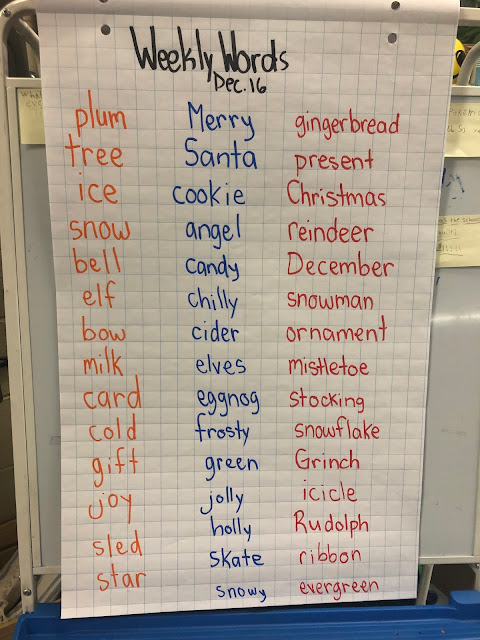 Weekly Words
Dec. 16
plum
tree
ice
snow
bell
elf
bow
milk
card
cold
gift
joy
sled
star
Merry
Santa
cookie
angel
candy
chilly
cider
elves
eggnog
frosty
green
jolly
holly
skate
snowy
gingerbread
present
Christmas
reindeer
December
snowman
ornament
mistletoe
stocking
snowflake
Grinch
icicle
Rudolph
ribbon
evergreen